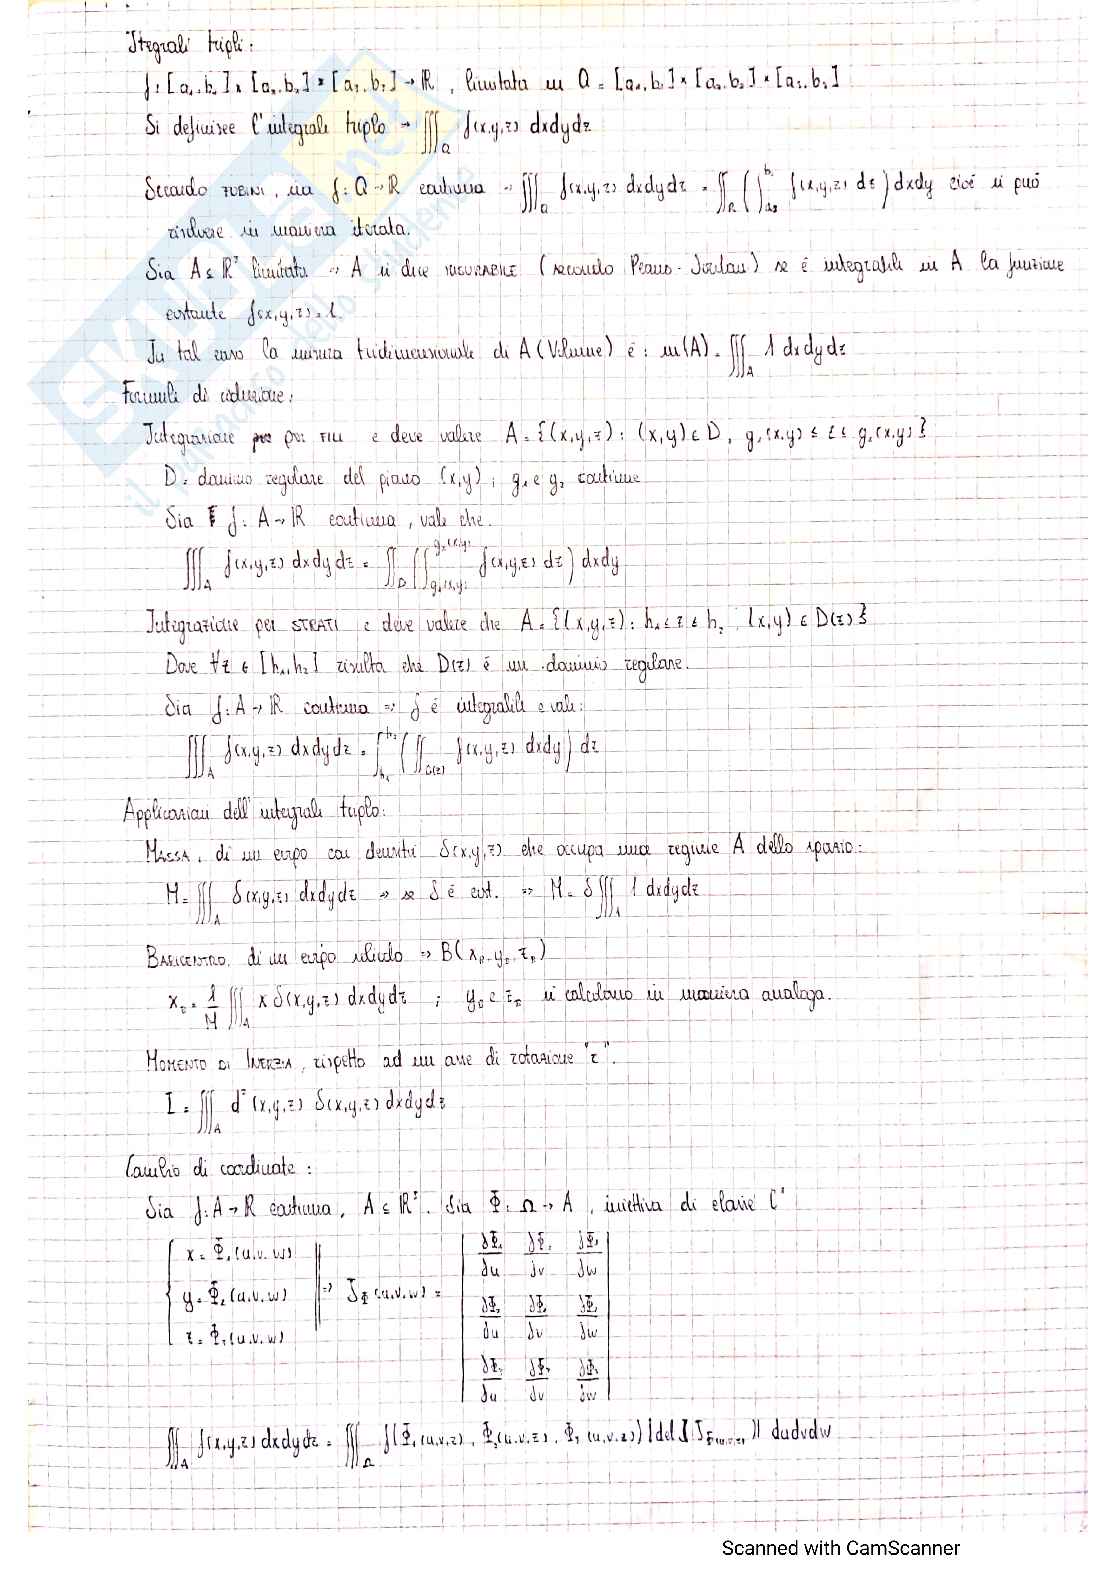 Itegrali tripli:
f: [a₁,b₁] × [a₂,b₂] × [a₃,b₃] → ℝ, limitata in Q = [a₁,b₁] × [a₂,b₂] × [a₃,b₃]
Si definisce l'integrale triplo → ∭_Q f(x,y,z) dxdydz
Secondo FUBINI, in f: Q → ℝ continua → ∭_Q f(x,y,z) dxdydz = ∬_R (∫_{a₃}^{b₃} f(x,y,z) dz) dxdy cioè si può
risolvere in maniera iterata.
Sia A ⊆ ℝ³ limitata → A si dice MISURABILE (secondo Peano-Jordan) se è integrabile in A la funzione
costante f(x,y,z)=1.
In tal caso la misura tridimensionale di A (Volume) è: m(A) = ∭_A 1 dxdydz
Formule di riduzione:
Integrazione per FILI e deve valere A = {(x,y,z): (x,y) ∈ D, g₁(x,y) ≤ z ≤ g₂(x,y)}
D = dominio regolare del piano (x,y); g₁ e g₂ continue
Sia f: A → ℝ continua, vale che.
∭_A f(x,y,z) dxdydz = ∬_D (∫_{g₁(x,y)}^{g₂(x,y)} f(x,y,z) dz) dxdy
Integrazione per STRATI e deve valere che A = {(x,y,z): h₁ ≤ z ≤ h₂, (x,y) ∈ D(z)}
Dove ∀z ∈ [h₁,h₂] risulta che D(z) è un dominio regolare.
Sia f: A → ℝ continua ⇒ f è integrabile e vale:
∭_A f(x,y,z) dxdydz = ∫_{h₁}^{h₂} (∬_{D(z)} f(x,y,z) dxdy) dz
Applicazioni dell'integrale triplo:
MASSA, di un corpo con densità δ(x,y,z) che occupa una regione A dello spazio:
M = ∭_A δ(x,y,z) dxdydz → se δ è cost. ⇒ M = δ ∭_A 1 dxdydz
BARICENTRO, di un corpo solido ⇒ B(x_B, y_B, z_B)
x_B = 1/M ∭_A x δ(x,y,z) dxdydz ; y_B e z_B si calcolano in maniera analoga.
MOMENTO DI INERZIA, rispetto ad un asse di rotazione "r".
I = ∭_A d²(x,y,z) δ(x,y,z) dxdydz
Cambio di coordinate:
Sia f: A → ℝ continua, A ⊆ ℝ³. Sia Φ: Ω → A, iniettiva di classe C¹
x = Φ₁(u,v,w)
y = Φ₂(u,v,w)
z = Φ₃(u,v,w)
⇒ J_Φ(u,v,w) =
∂Φ₁/∂u ∂Φ₁/∂v ∂Φ₁/∂w
∂Φ₂/∂u ∂Φ₂/∂v ∂Φ₂/∂w
∂Φ₃/∂u ∂Φ₃/∂v ∂Φ₃/∂w
∭_A f(x,y,z) dxdydz = ∭_Ω f(Φ₁(u,v,z), Φ₂(u,v,z), Φ₃(u,v,z)) |det J_Φ(u,v,z)| dudvdw
SKUOLA.net
il paradiso dello studente
Scanned with CamScanner